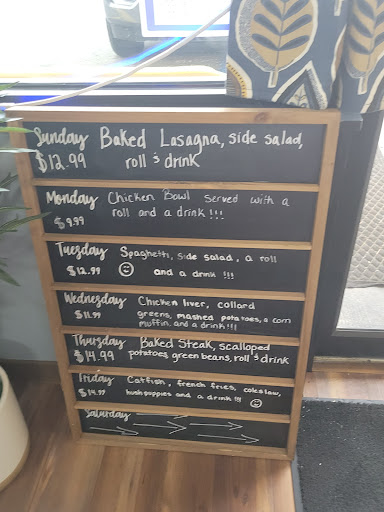 Sunday Baked Lasagna, side salad,
$12.99 roll & drink
Monday Chicken Bowl served with a
$9.99 roll and a drink!!!
Tuesday Spaghetti, side salad, a roll
$12.99 and a drink !!!
Wednesday Chicken liver, collard
$11.99 greens, mashed potatoes, a corn
muffin, and a drink!!!
Thursday Baked Steak, scalloped
$14.99 potatoes, green beans, roll & drink
Friday Catfish, french fries, coleslaw,
$14.99 hushpuppies and a drink !!!
Saturday